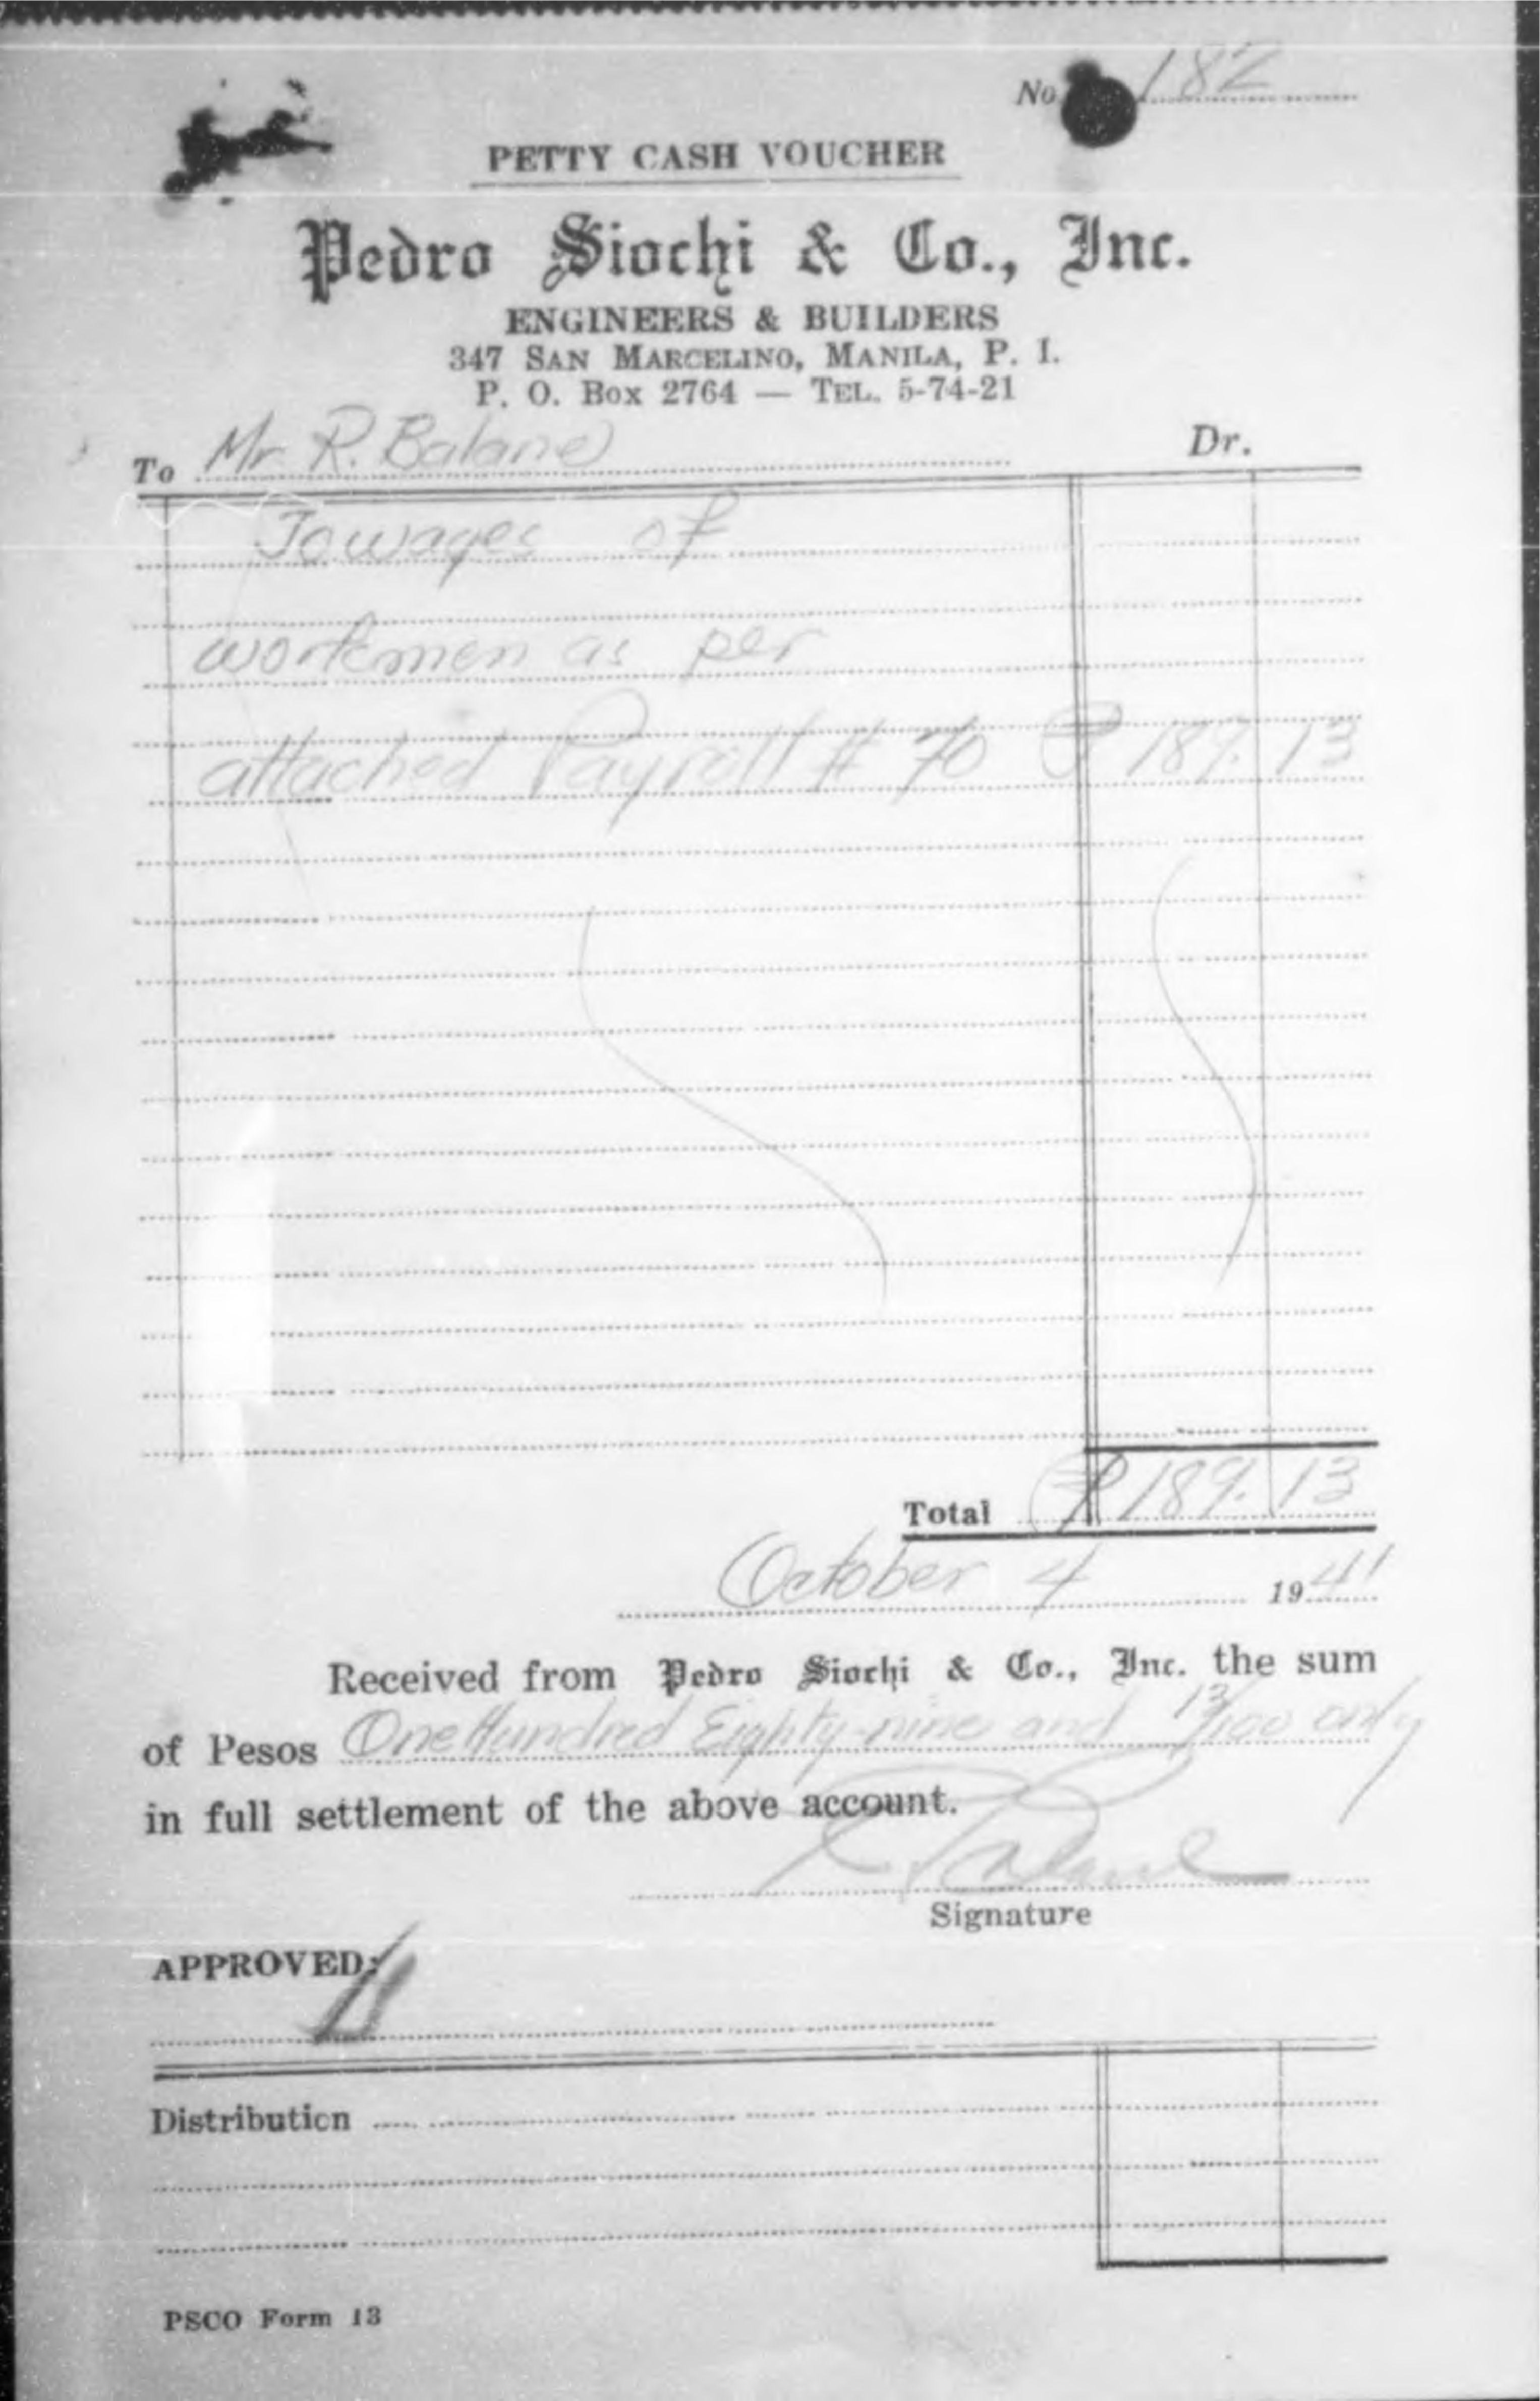 No 182
PETTY CASH VOUCHER
Pedro Siochi & Co., Inc.
ENGINEERS & BUILDERS
347 SAN MARCELINO, MANILA, P. I.
P. O. Box 2764 — TEL. 5-74-21
To Mr. R. Balane Dr.
To wages of
workmen as per
attached Payroll # 70 ₱ 189.13
Total ₱ 189.13
October 4 1941
Received from Pedro Siochi & Co., Inc. the sum
of Pesos One Hundred Eighty-nine and 13/100 only
in full settlement of the above account.
R. Balane
Signature
APPROVED:
Distribution
PSCO Form 13